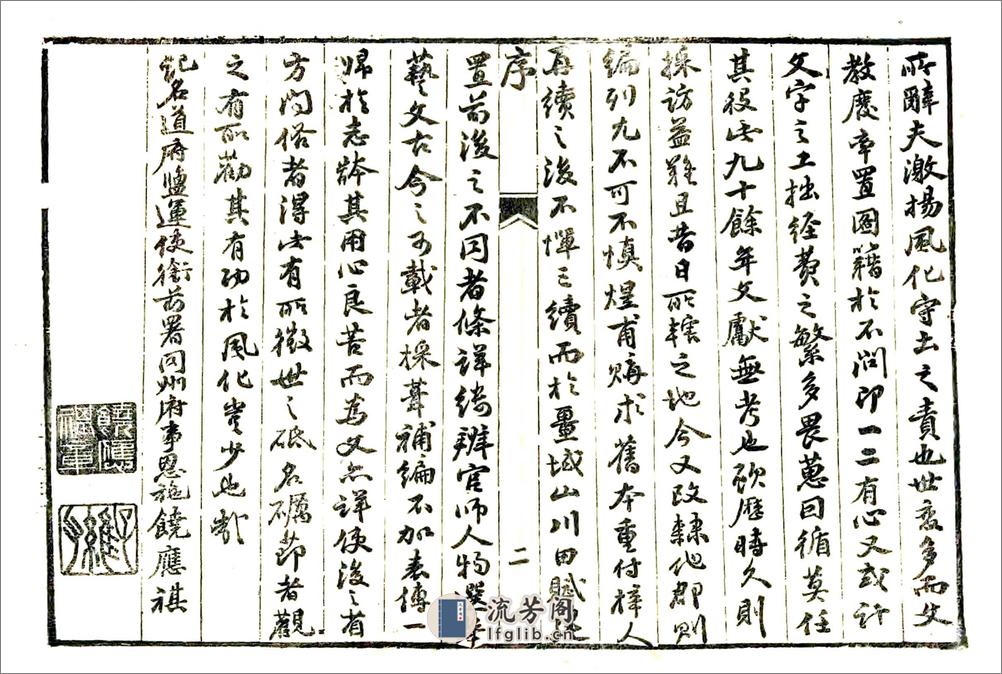 所辭夫激揚風化守土之責也世衰多而文
教廢率置圖籍於不問即一二有心又或計
文字之工拙經費之繁多畏葸因循莫任
其役安九十餘年文獻無考也欤歷時久則
採訪益難且昔日所轄之地今又改隸他郡則
編列尤不可不慎煜甫購求舊本重付梓人
再續之後不憚三續而於畺域山川田賦
置前後之不同者條詳縷辨官師人物選舉
藝文古今之可載者採葺補編不加表傳一
歸於志餘其用心良苦而為文亦詳使後之有
方問俗者得以有所徵世之砥名礪節者觀
之有所勸其有功於風化豈少也哉
記名道府鹽運使銜前署同州府事恩施饒應祺
序
二
饒應祺章
流芳阁
lfglib.cn